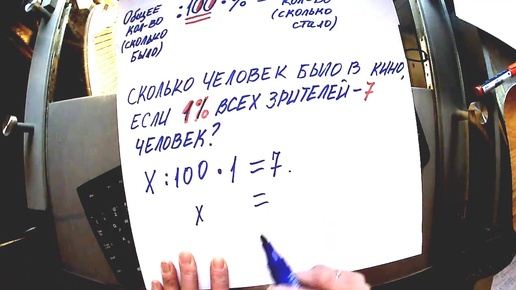 ОБЩЕЕ :100 · % =
КОЛ-ВО КОЛ-ВО
(СКОЛЬКО (СКОЛЬКО
БЫЛО) СТАЛО)
СКОЛЬКО ЧЕЛОВЕК БЫЛО В КИНО,
ЕСЛИ 1% ВСЕХ ЗРИТЕЛЕЙ-7
ЧЕЛОВЕК?
X:100·1=7.
X =